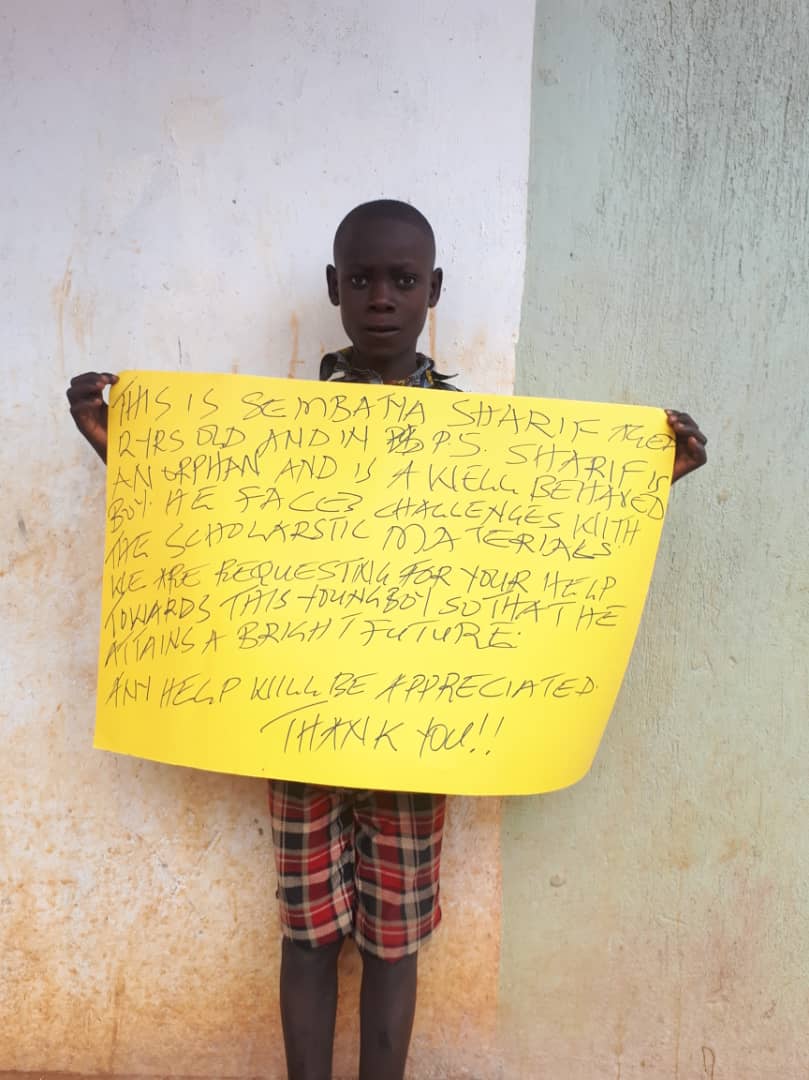 THIS IS SEMBATYA SHARIF AGED
12 YRS OLD AND IN P5. SHARIF IS
AN ORPHAN AND IS A WELL BEHAVED
BOY. HE FACES CHALLENGES WITH
THE SCHOLARSTIC MATERIALS.
WE ARE REQUESTING FOR YOUR HELP
TOWARDS THIS YOUNG BOY SO THAT HE
ATTAINS A BRIGHT FUTURE.
ANY HELP WILL BE APPRECIATED.
THANK YOU!!